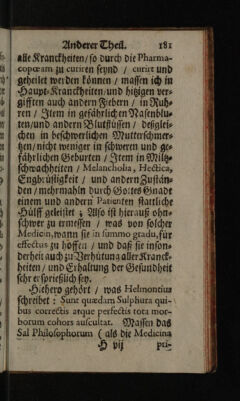 Anderer Theil. 181
alle Kranckheiten / so durch die Pharma-
copœam zu curiren seynd / curirt und
geheilet werden können / massen ich in
Haupt-Kranckheiten / und hitzigen ver-
gifften auch andern Fiebern / in Ruh-
ren / Item in gefährlichen Nasenblu-
ten / und andern Blutflüssen / desglei-
chen in beschwerlichen Mutterschmer-
tzen / nicht weniger in schweren und ge-
fährlichen Geburten / Item in Miltz-
schwachheiten / Melancholia, Hectica,
Engbrüstigkeit / und andern Zustän-
den / mehrmahln durch Gottes Gnade
einem und andern Patienten stattliche
Hülff geleistet ; Also ist hierauß ohn-
schwer zu ermessen / was von solcher
Medicin, wann sie in summo gradu, für
effectus zu hoffen / und daß sie inson-
derheit auch zu Verhütung aller Kranck-
heiten / und Erhaltung der Gesundheit
sehr ersprießlich sey.
Hiehero gehört / was Helmontius
schreibet : Sunt quædam Sulphura qui-
bus correctis atque perfectis tota mor-
borum cohors auscultat. Massen das
Sal Philosophorum ( als die Medicina
H vij pri-